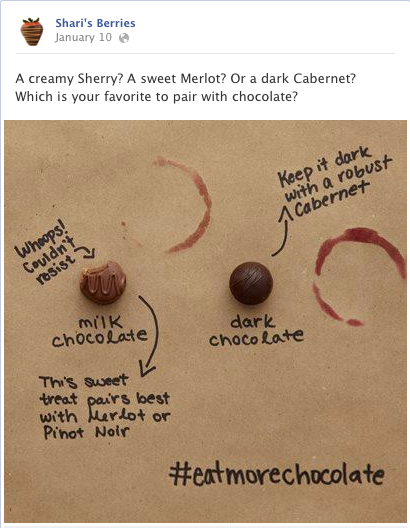 Shari's Berries
January 10
A creamy Sherry? A sweet Merlot? Or a dark Cabernet?
Which is your favorite to pair with chocolate?
Keep it dark
with a robust
Cabernet
Whoops!
Couldn't
resist
milk
chocolate
dark
chocolate
This sweet
treat pairs best
with Merlot or
Pinot Noir
#eatmorechocolate